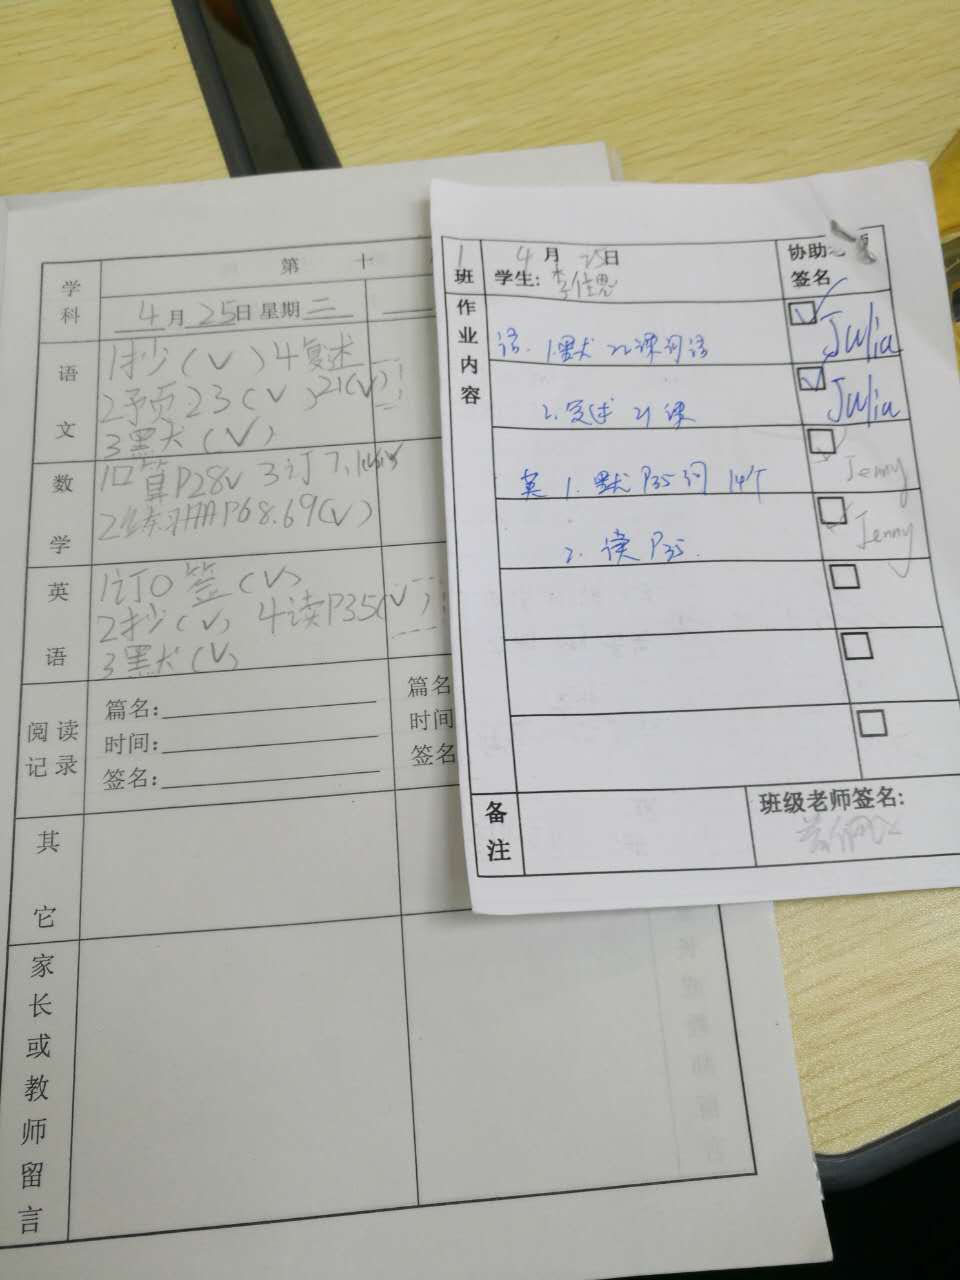 学科
第 十
4月25日 星期二
语文
1抄(√) 4复述
2予页23(√) 21(√)
3黑犬(√)
数学
1口算P28√ 3订7.1
2练习册P68.69(√)
英语
1订0 签(√)
2抄(√) 4读P35(√)
3黑犬(√)
阅读记录
篇名:
时间:
签名:
篇名
时间
签名
其它
家长或教师留言
1班
4月25日
学生:
协助
签名
作业内容
语. 1.默22课词语
Julia
2.复述 21课
Julia
英 1.默P35词 14个
Jenny
2. 读P35.
Jenny
备注
班级老师签名: